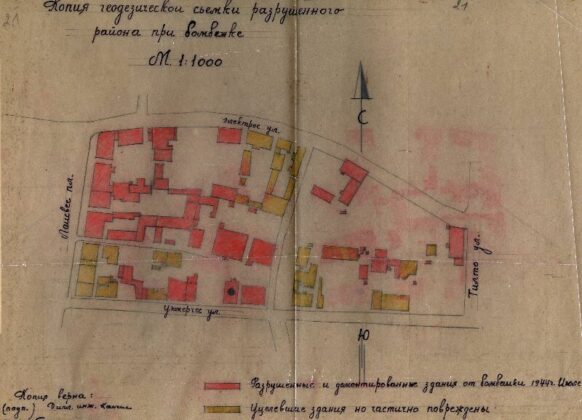 20
21
Копия геодезической съемки разрушенного
района при бомбежке
М. 1:1000
С
Электрос ул.
пл.
Тилто ул.
ул.
Ю
Разрушенные и демонтированные здания от бомбежки 1944 г. Июле
Уцелевшие здания но частично повреждены
Копия верна:
(подп.) Дипл. инж.